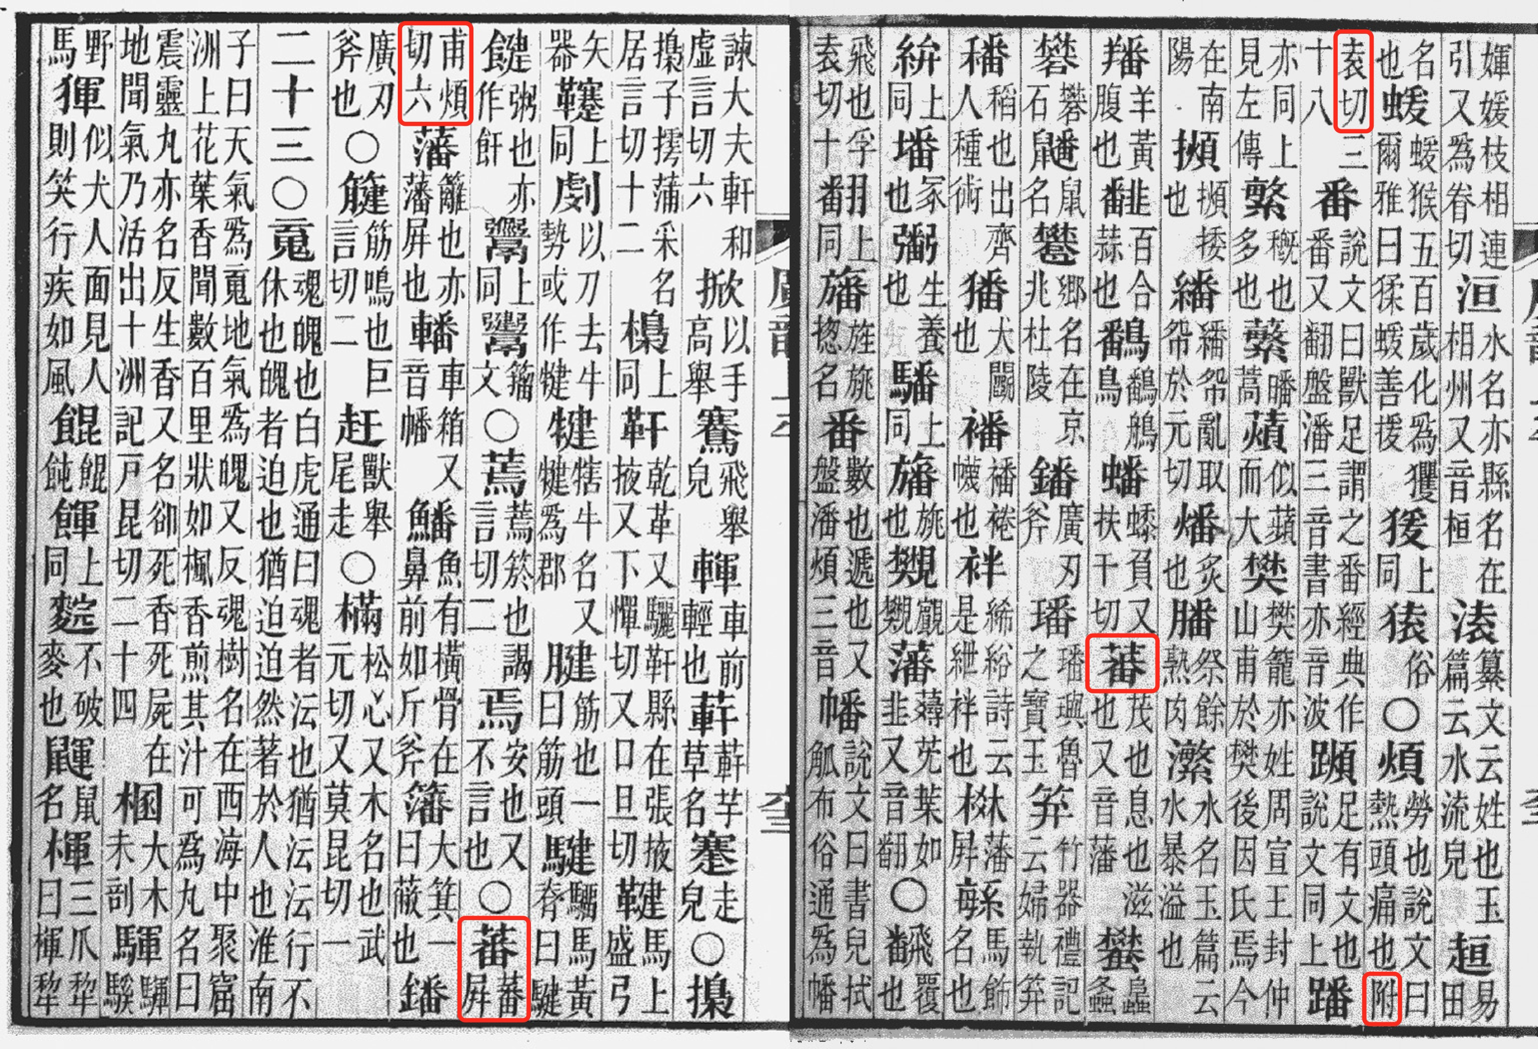 媈媛枝相連引又爲眷切 洹 水名亦縣名在相州又音桓 湲 纂文云姓也玉篇云水流皃 趄 易田
名也 蝯 蝯猴五百歲化爲玃爾雅曰猱蝯善援 猨 上同 猿 俗 ○ 煩 勞也說文曰熱頭痛也附
袁切三十八 番 說文曰獸足謂之番經典作番又翻盤潘三音書亦音波 足有文也說文同上 蹯
亦同上見左傳 繁 穊也多也 蘩 皤蒿 薠 似蘋而大 樊 樊籠亦姓周宣王封仲山甫於樊後因氏焉今
在南陽 捼也 繙 繙帤亂取帤於元切 燔 炙也 膰 祭餘熟肉 瀿 水名玉篇云水暴溢也
羳 羊黃腹也 百合蒜也 鷭 鷭鴋鳥 蟠 負又扶干切 蕃 茂也息也滋也又音藩 蠜 螽
礬 礬石 鼠名 鄉名在京兆杜陵 鐇 廣刃斧 璠 璠璵魯之寶玉 笲 竹器禮記云婦執笲
稻也出齊人種術 犬鬬也 襎 襎裷幭也 袢 絺綌詩云是紲袢也 棥 藩屏也 緐 馬飾名也
上同 墦 冢也 生養也 上同 旛 旒也 藩 葉如韭又音翻 ○ 飜 飛覆也
飛也孚袁切十 翻 上同 旛 旌旗惣名 番 數也遞也又盤潘煩三音 幡 說文曰書兒拭觚布俗通爲幡
廣韻上平
諫大夫軒和虛言切六 掀 以手高舉 騫 飛舉皃 軒 車前輕也 蓒 蓒芋草名 蹇 走皃 ○ 攑
攑子摴蒲采名居言切十二 上同 䩑 乾革又驪軒縣在張掖又下憚切又口旦切 鞬 馬上盛弓
矢器 上同 劇 以刀去牛勢或作犍 犍 犗牛名又犍爲郡 腱 筋也一曰筋頭 騝 騮馬黃脊曰騝
粥也亦作飦 鬻 上同 籀文 ○ 蔫 蔫菸也謁言切二 焉 安也又不言也 ○ 蕃 蕃屏
甫煩切六 藩 籬也亦藩屏也 轓 車箱又音幡 鱕 魚有橫骨在鼻前如斤斧 籓 大箕一曰蔽也 鐇
廣刃斧也 ○ 筋鳴也巨言切二 赶 獸舉尾走 ○ 樠 松心又木名也武元切又莫昆切一
二十三 ○ 䰟 魂魄也白虎通曰魂者沄也猶沄沄行不休也魄者迫也猶迫迫然著於人也淮南
子曰天氣爲䰟地氣爲魄又反魂樹名在西海中聚窟洲上花葉香聞數百里狀如楓香煎其汁可爲丸名曰
震靈丸亦名反生香又名卻死香死屍在地聞氣乃活出十洲記戶昆切二十四 梱 大木未剖 驒騱
野馬 似犬人面見人則笑行疾如風 餛 餛飩 餫 上同 不破麥也 鼲 鼠名 楎 三爪犂曰楎犂